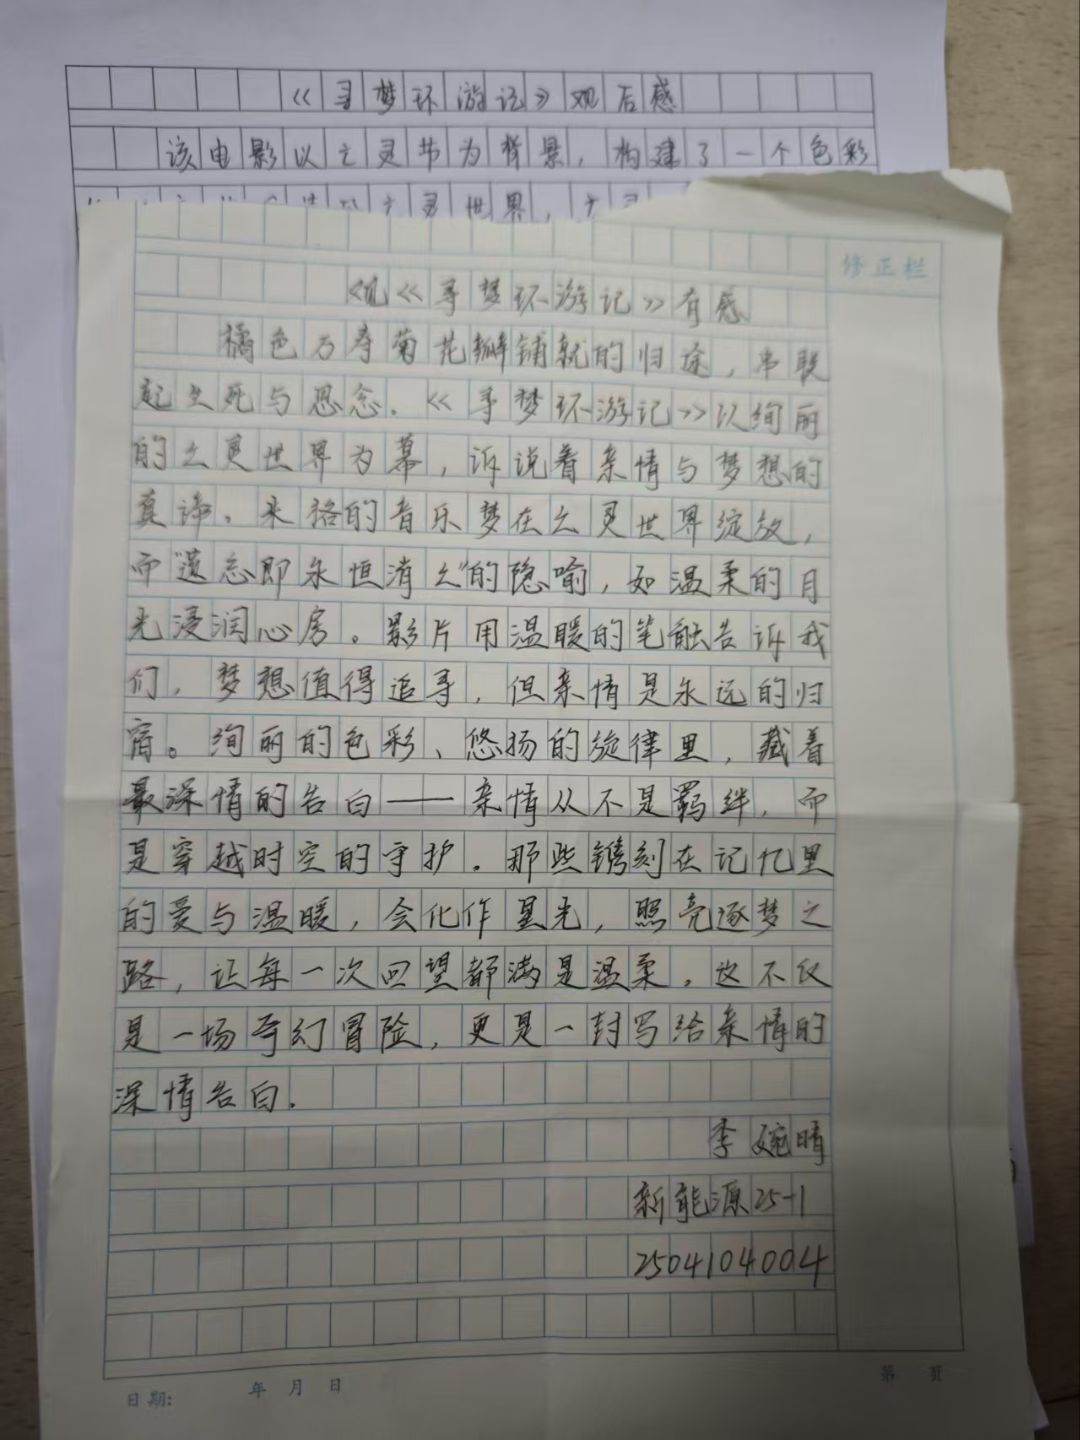 《寻梦环游记》观后感
该电影以亡灵节为背景，构建了一个色彩
亡灵世界，亡灵
修正栏
观《寻梦环游记》有感
橘色万寿菊花瓣铺就的归途，串联
起生死与思念。《寻梦环游记》以绚丽
的亡灵世界为幕，诉说着亲情与梦想的
真谛。米格的音乐梦在亡灵世界绽放，
而“遗忘即永恒消亡”的隐喻，如温柔的月
光浸润心房。影片用温暖的笔触告诉我
们，梦想值得追寻，但亲情是永远的归
宿。绚丽的色彩、悠扬的旋律里，藏着
最深情的告白——亲情从不是羁绊，而
是穿越时空的守护。那些镌刻在记忆里
的爱与温暖，会化作星光，照亮逐梦之
路，让每一次回望都满是温柔。这不仅
是一场奇幻冒险，更是一封写给亲情的
深情告白。
李婉晴
新能源25-1
2504104004
日期： 年 月 日
第 页